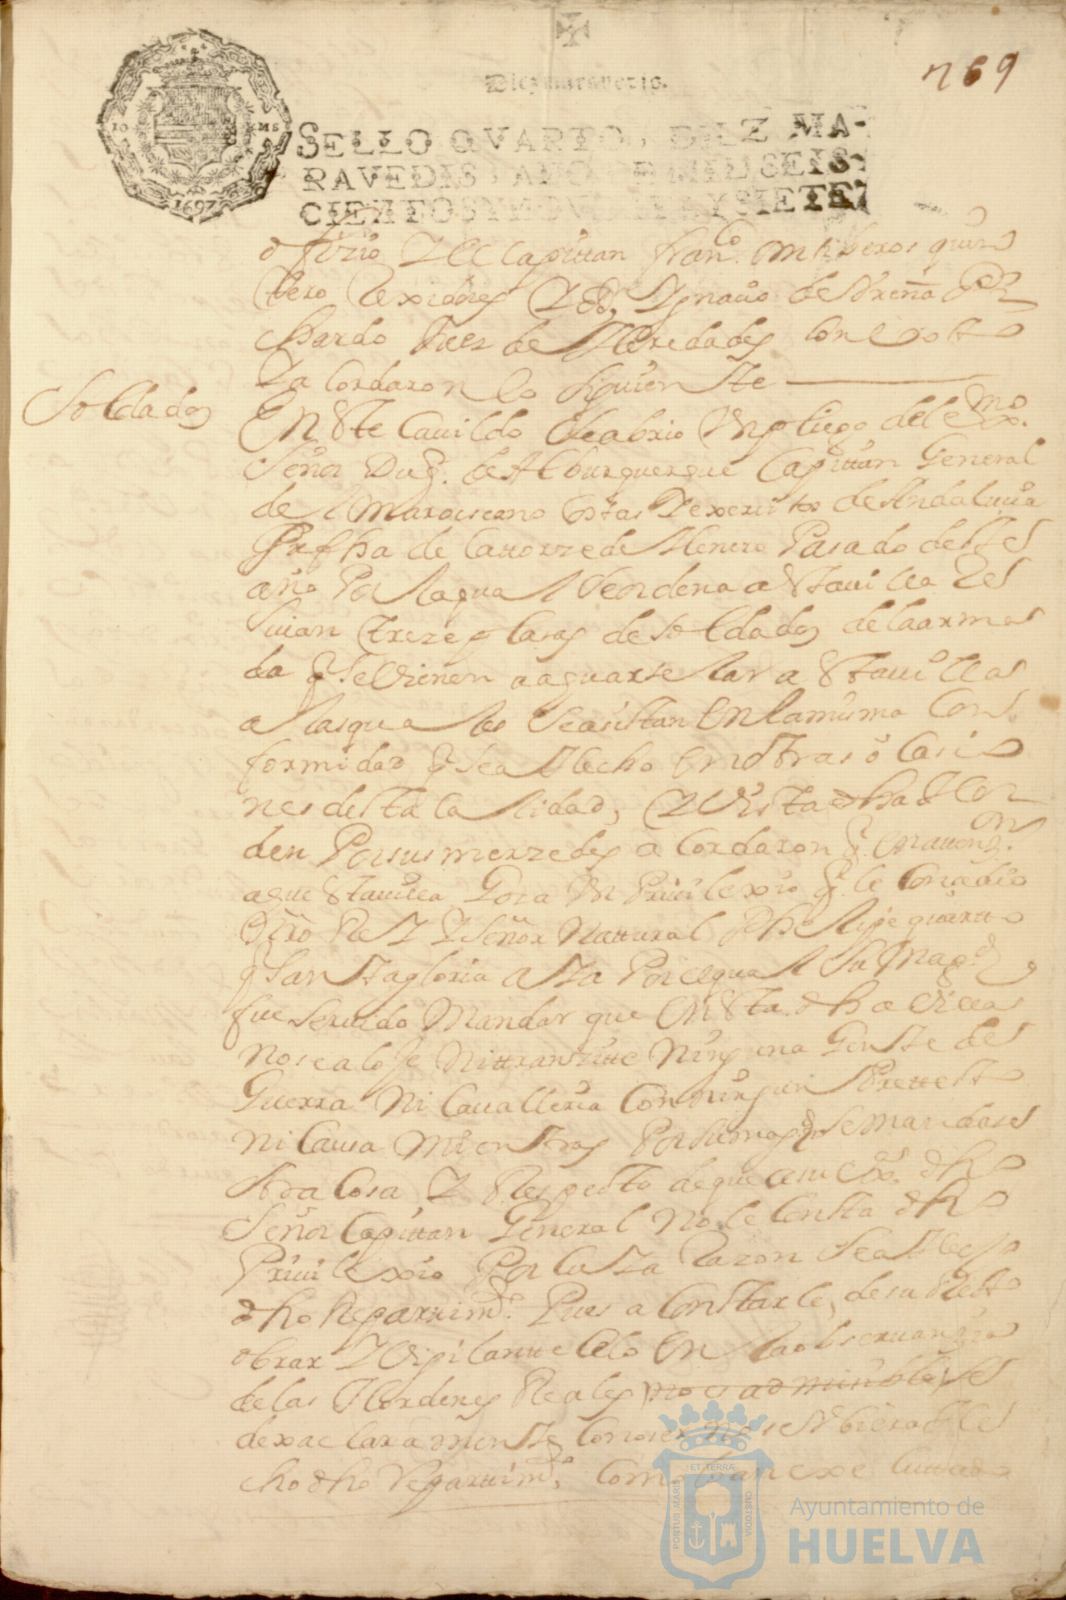 269
Diez maravedis.
SELLO QVARTO, DIEZ MA-
RAVEDIS, AÑO DE MIL SEIS-
CIENTOS Y NOVENTA Y SIETE.
1697
ofizio Y el Capittan franco. quin
tero Rexidores Y Dn. Ygnacio de
chardo Juez de Heredades con voto
Y acordaron lo siguiente
Soldados
En Este Cauildo Se abrio Un pliego del exmo.
Señor Duq. de Alburquerque Capittan General
de el Mar oceano Costas Y exercito de Andalucia
Su fha de Cattorze de Henero Pasado de este
año Por la qual Se ordena a Esta uilla Re
siuan treze plasas de Soldados de la arma
da q Se Vienen a aquarttelar a Esta uilla
a las quales Se asistan En la misma Con
formidad q Se a Hecho En otras ocasio
nes de Esta Calidad, Y Vista dha Hor
den Por sus merzedes acordaron q. En attenzon.
a que Esta uilla Gosa Un Priuilexio q. le Consedio
Ntro Rey Y Señor Nattural Phelipe quartto
q Santa gloria aya Por el qual Su Magd.
fue Seruido Mandar que En Esta dha Uilla
no se aloje Ni ttransitte Ninguna Gente de
Guerra Ni Caualleria Con Ningun Prettesto
Ni Causa Mientras Por su magd. no Se Mandase
Otra Cosa Y Respecto de que a su exa. dho
Señor Capittan General No le Consta dho
Priuilexio Por Cuya Razon Se a Hecho
dho Repartimto. Pues a Constarle, de su Recto
obrar Y Vigilantte Celo En la obseruanzia
de las Hordenes Reales no es admisible Se
dexa claramente Conoser No se Vbiera He
cho dho Repartimto. Con
PORTUS MARIS ET TERRÆ CUSTODIA
Ayuntamiento de
HUELVA